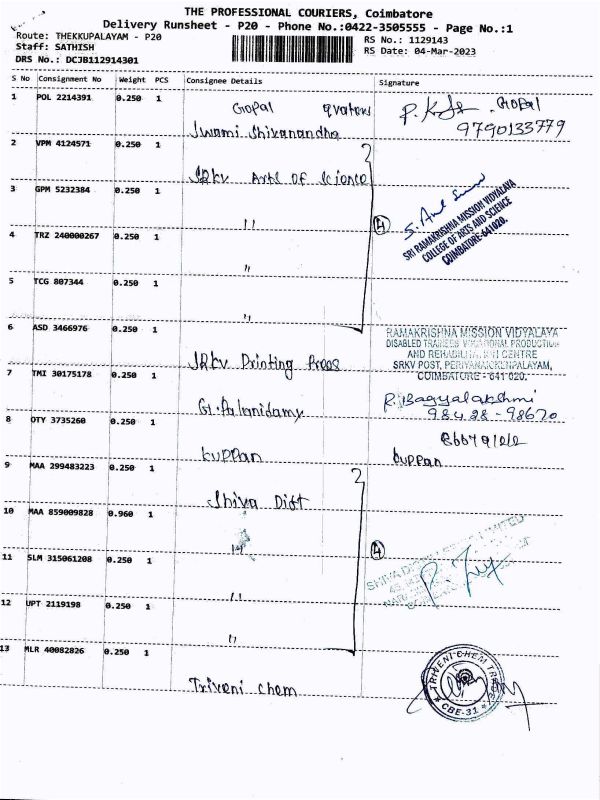 THE PROFESSIONAL COURIERS, Coimbatore
Delivery Runsheet - P20 - Phone No.:0422-3505555 - Page No.:1
Route: THEKKUPALAYAM - P20
RS No.: 1129143
Staff: SATHISH
RS Date: 04-Mar-2023
DRS No.: DCJB112914301
S No Consignment No Weight PCS Consignee Details Signature
1 POL 2214391 0.250 1
Gopal
Gopal
Swami Shivanandha
9790133779
2 VPM 4124571 0.250 1
SRKV Arts of Science
3 GPM 5232384 0.250 1
"
4
SRI RAMAKRISHNA MISSION VIDYALAYA
COLLEGE OF ARTS AND SCIENCE
COIMBATORE-641020.
4 TRZ 240000267 0.250 1
"
5 TCG 807344 0.250 1
"
6 ASD 3466976 0.250 1
SRKV Printing Press
RAMAKRISHNA MISSION VIDYALAYA
DISABLED TRAINEES VOCATIONAL PRODUCTION
AND REHABILITATION CENTRE
SRKV POST, PERIYANAICKENPALAYAM,
COIMBATORE - 641 020.
7 TMI 30175178 0.250 1
G.Palanidamy
R. Bagyalakshmi
98428-98670
8 OTY 3735260 0.250 1
kuppan
kuppan
9 MAA 299483223 0.250 1
Shiva Dist
10 MAA 859009828 0.960 1
"
4
11 SLM 315061208 0.250 1
"
12 UPT 2119198 0.250 1
"
13 MLR 40082826 0.250 1
Triveni chem
TRIVENI CHEM
CBE-31